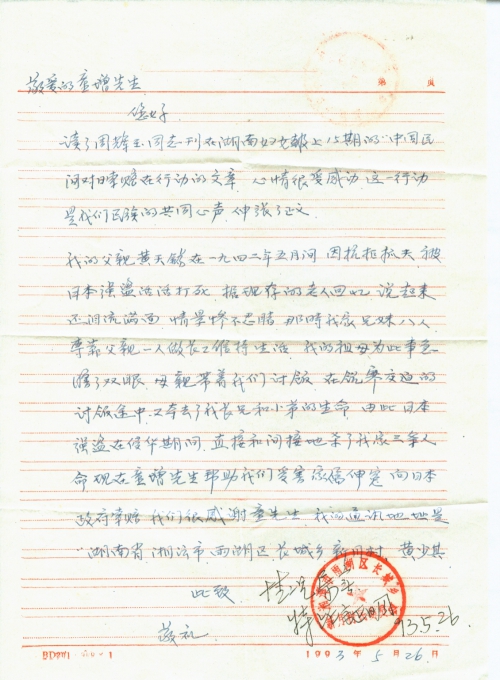 第 页
敬爱的童增先生
您好
读了周辉王同志刊在湖南妇女报上15期的"中国民
间对日索赔在行动的文章,心情很受感动,这一行动
是我们民族的共同心声,伸张了正义
我的父亲黄天 在一九四二年五月间,因抗拒抓夫,被
日本强盗活活打死,据现存的老人回忆,说起来
还泪流满面,情景惨不忍睹,那时我家兄妹八人,
专靠父亲一人做长工维持生活,我的祖母为此事急
瞎了双眼,母亲带着我们讨饭,在饥寒交迫的
讨饭途中,又夺去了我长兄和小弟的生命,由此日本
强盗在侵华期间,直接和间接地杀了我家三条人
命,现在童增先生帮助我们受害家属伸冤,向日本
政府索赔,我们很感谢童先生,我的通讯地址是
"湖南省湘潭市西湖区长城乡 村 黄少其
此致 情况属实
特此证明
93.5.26
敬礼
1993年5月26日